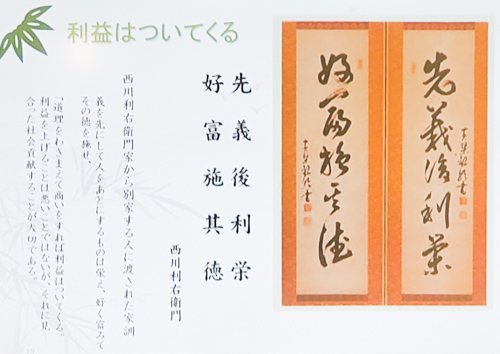 利益はついてくる
先義後利栄
好富施其徳
西川利右衛門
西川利右衛門家から別家する人に渡された家訓
義を先にして人をあとにするものは栄え、好く富みて
その徳を施せ、
「道理をわきまえて商いをすれば利益はついてくる。
利益を上げることは悪いことではないが、それに見
合った社会貢献することが大切である。
先義後利栄
好富施其徳